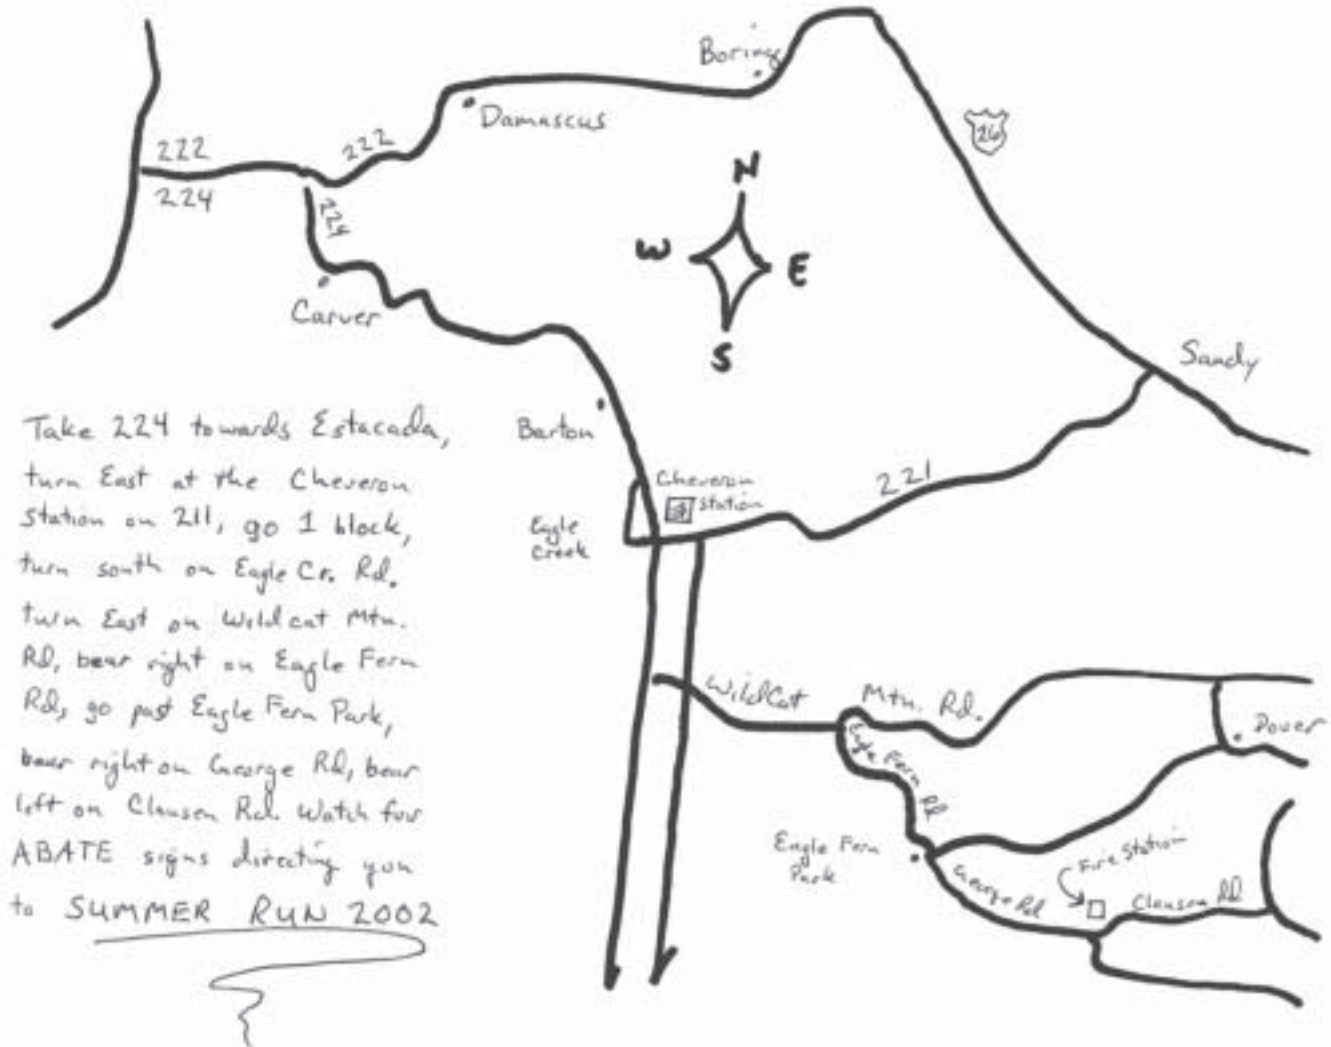 Boring
26
Damascus
222
222
224
224
N
W
E
S
Carver
Sandy
Barton
Cheveron
Station
221
Eagle
Creek
Take 224 towards Estacada,
turn East at the Cheveron
Station on 211, go 1 block,
turn south on Eagle Cr. Rd.
turn East on Wildcat Mtn.
Rd, bear right on Eagle Fern
Rd, go past Eagle Fern Park,
bear right on George Rd, bear
left on Clausen Rd. Watch for
ABATE signs directing you
to SUMMER RUN 2002
WildCat Mtn. Rd.
Dover
Eagle Fern Rd
Eagle Fern
Park
Fire Station
George Rd
Clausen Rd